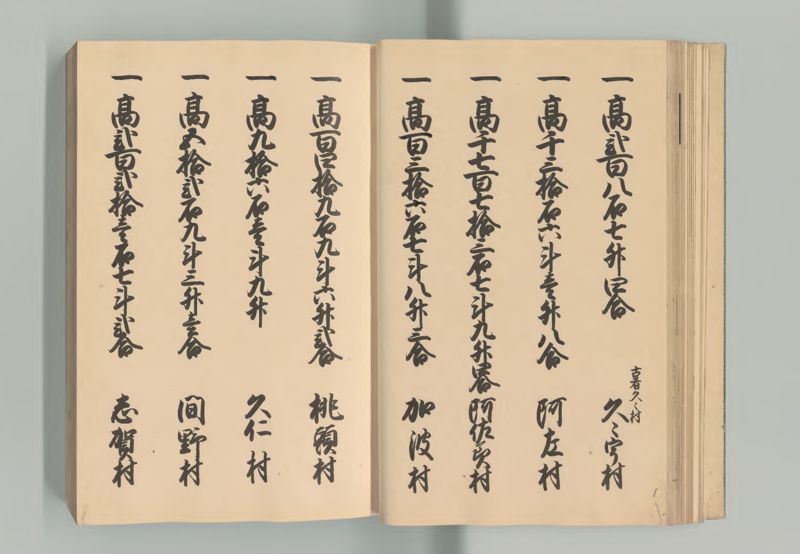 一 高弐百八石七升四合
古者久々村
久々宇村
一 高千三拾石六斗壱升八合 阿左村
一 高千七百七拾三石七斗九升四合 阿佐美村
一 高百三拾六石七斗八升三合 加波村
一 高百四拾九石九斗六升弐合 桃頭村
一 高九拾六石壱斗九升 久仁村
一 高五拾弐石九斗三升壱合 間野村
一 高弐百弐拾壱石七斗弐合 志賀村